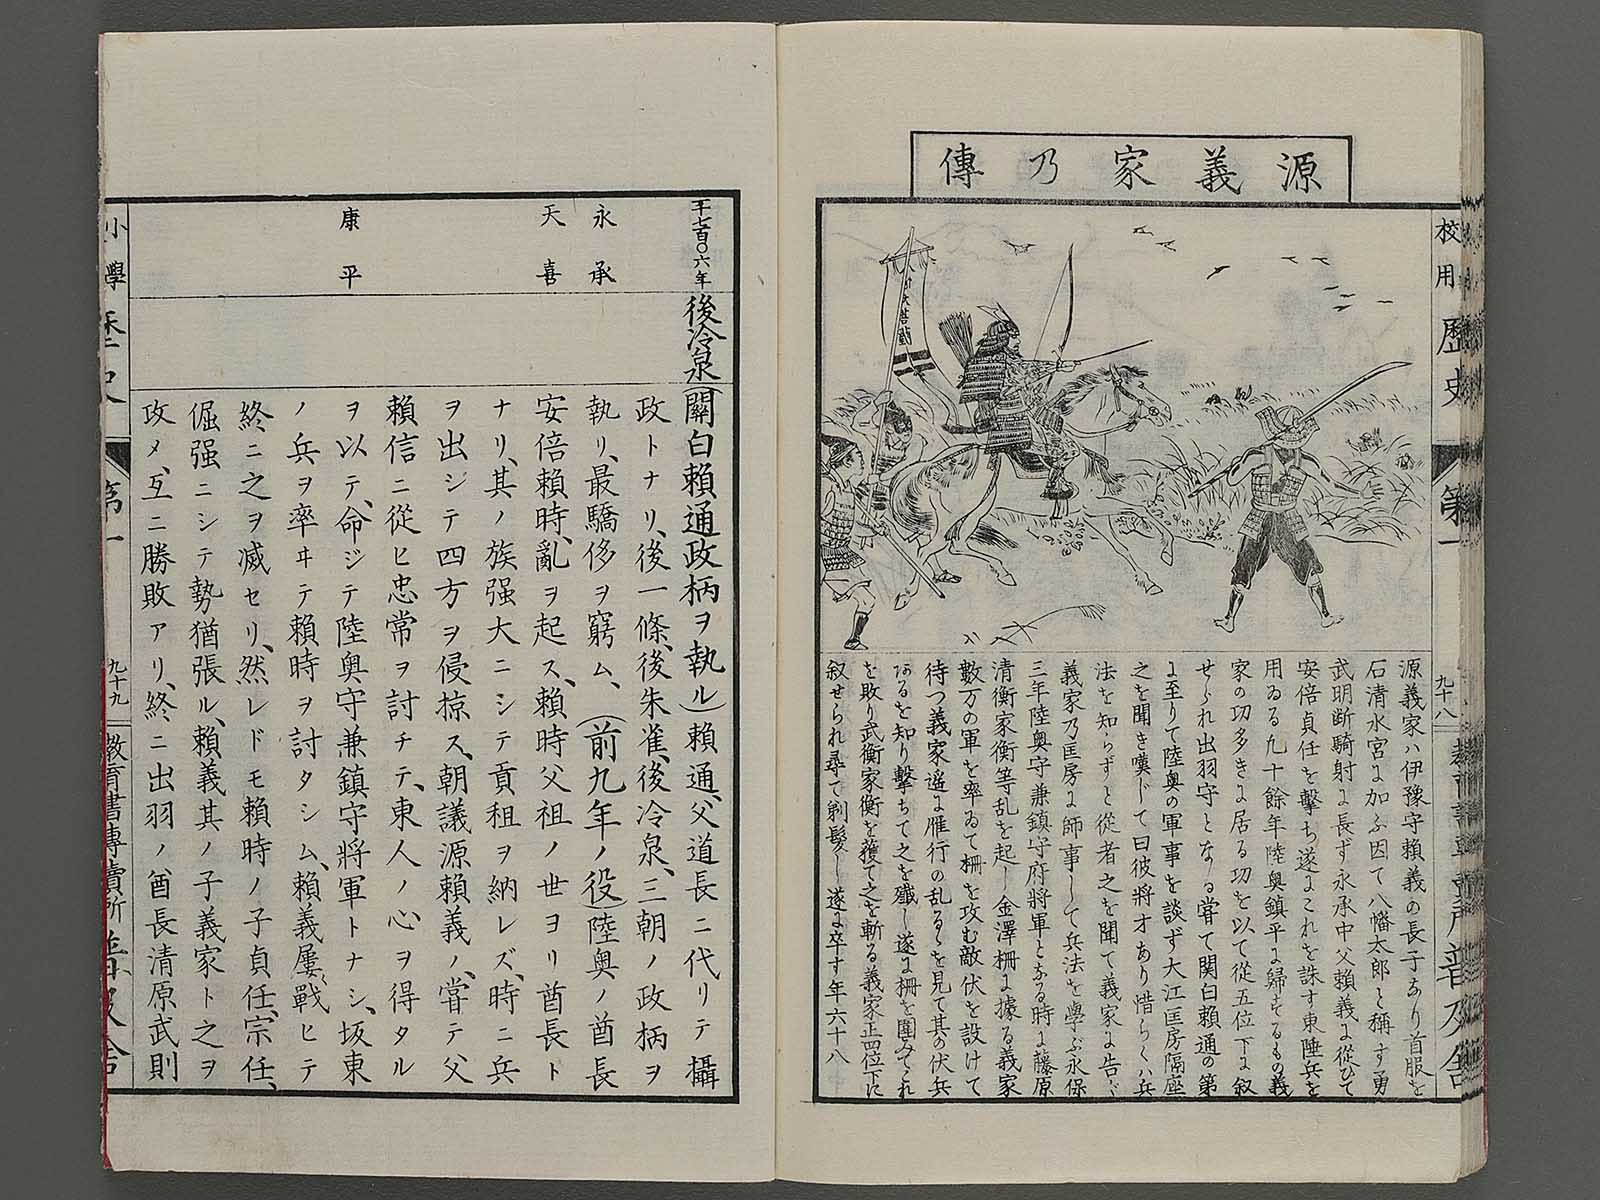 源義家乃傳
校用歷史
第一
九十八
普及舍
源義家ハ伊豫守賴義の長子なり首服を
石清水宮よ加ふ因て八幡太郎と稱す勇
武明断騎射よ長ず永承中父賴義よ從ひて
安倍貞任を擊ち遂よこれを誅す東陲兵を
用ゐる九十餘年陸奥鎮平よ歸するもの義
家の功多きよ居る功を以て從五位下よ叙
せられ出羽守となる嘗て関白賴通の第
よ至りて陸奥の軍事を談ず大江匡房隔座
之を聞き嘆じて曰彼將才あり惜らくハ兵
法を知らずと從者之を聞て義家よ告ぐ
義家乃匡房よ師事して兵法を學ぶ永保
三年陸奥守兼鎮守府將軍となる時よ藤原
清衡家衡等乱を起し金澤柵よ據る義家
數万の軍を率ゐて柵を攻む敵伏を設けて
待つ義家遙よ雁行の乱るゝを見て其の伏兵
あるを知り擊ちて之を殲し遂よ柵を圍みてこれ
を敗り武衡家衡を獲て之を斬る義家正四位下に
叙せられ尋て剃髪し遂よ卒す年六十八
千七百〇六年
永承
天喜
康平
後冷泉
(關白賴通政柄ヲ執ル)賴通、父道長ニ代リテ攝
政トナリ、後一條、後朱雀、後冷泉、三朝ノ政柄ヲ
執リ、最驕侈ヲ窮ム、(前九年ノ役)陸奥ノ酋長
安倍賴時、亂ヲ起ス、賴時父祖ノ世ヨリ酋長ト
ナリ、其ノ族强大ニシテ貢租ヲ納レズ、時ニ兵
ヲ出シテ四方ヲ侵掠ス、朝議源賴義ノ、嘗テ父
賴信ニ從ヒ忠常ヲ討チテ、東人ノ心ヲ得タル
ヲ以テ、命ジテ陸奥守兼鎮守將軍トナシ、坂東
ノ兵ヲ率ヰテ賴時ヲ討タシム、賴義屢〻戰ヒテ
終ニ之ヲ滅セリ、然レドモ賴時ノ子貞任、宗任、
倔强ニシテ勢猶張ル、賴義其ノ子義家ト之ヲ
攻メ、互ニ勝敗アリ、終ニ出羽ノ酋長清原武則
小學歷史
第一
九十九
教育書專賣所普及舍